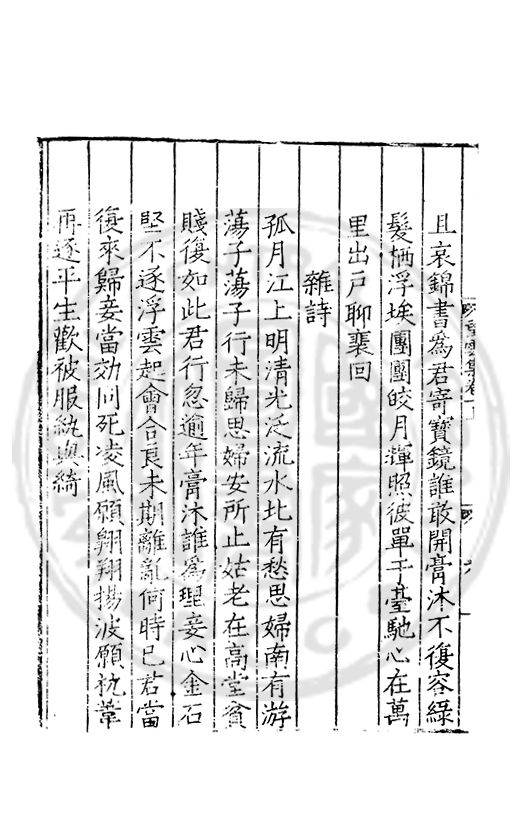 且哀錦書為君寄寶鏡誰敢開膏沐不復容綠
髮栖浮埃團團皎月輝照彼單于臺馳心在萬
里出戶聊裴回
雜詩
孤月江上明清光泛流水北有愁思婦南有游
蕩子蕩子行未歸思婦安所止姑老在高堂貧
賤復如此君行忽逾年膏沐誰為理妾心金石
堅不逐浮雲起會合良未期離亂何時已君當
復來歸妾當効同死凌風願翱翔揚波願枕葦
再逐平生歡被服紈與綺